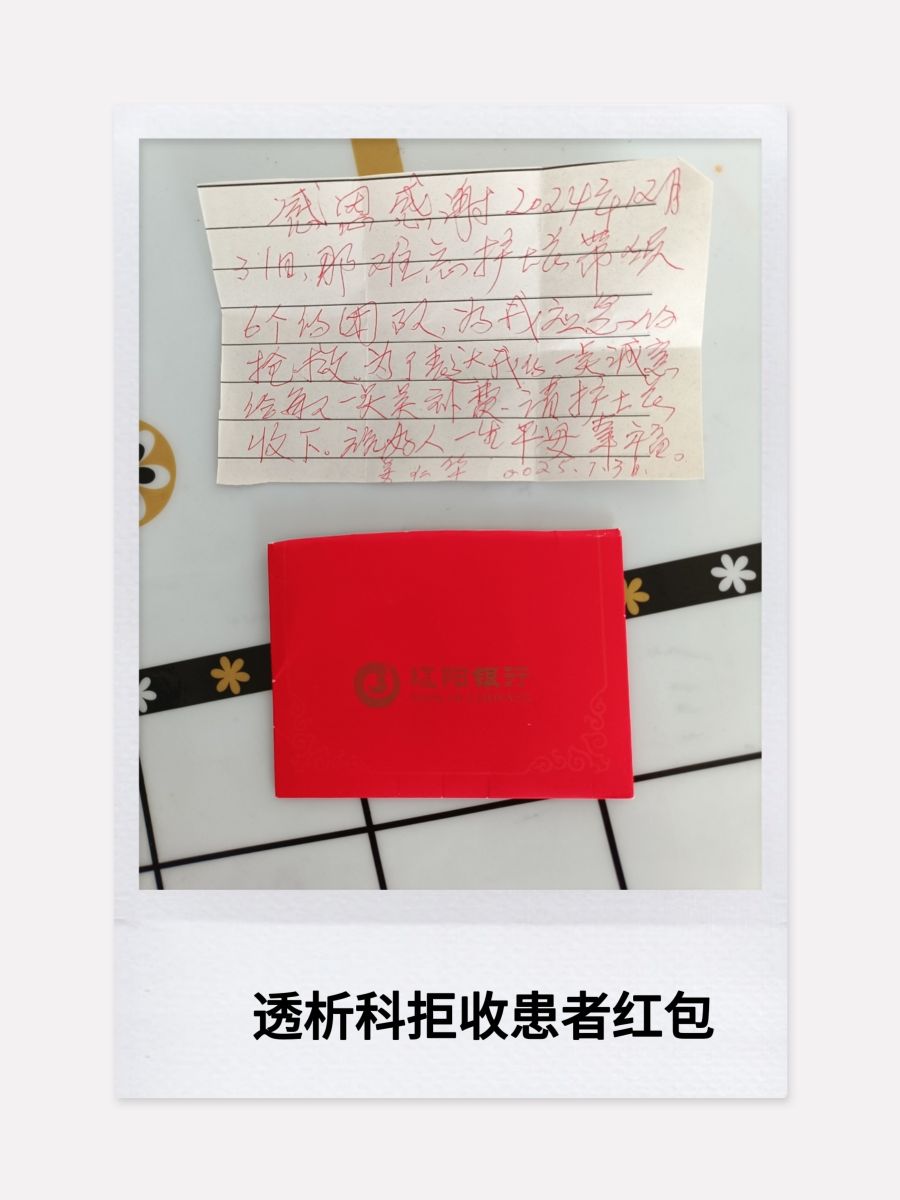 感恩感谢2024年12月
31日,那难忘护士长带领
6个的团队,为我应急的
抢救,为了表达我的一点诚意
给每人一点关补费.请护士长
收下。祝好人一生平安 幸福。
2025.1.3日.
银行
透析科拒收患者红包